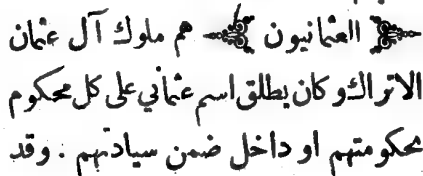 ﴿ العثمانيون ﴾ هم ملوك آل عثمان
الاتراك وكان يطلق اسم عثماني على كل محكوم
بحكومتهم او داخل ضمن سيادتهم . وقد